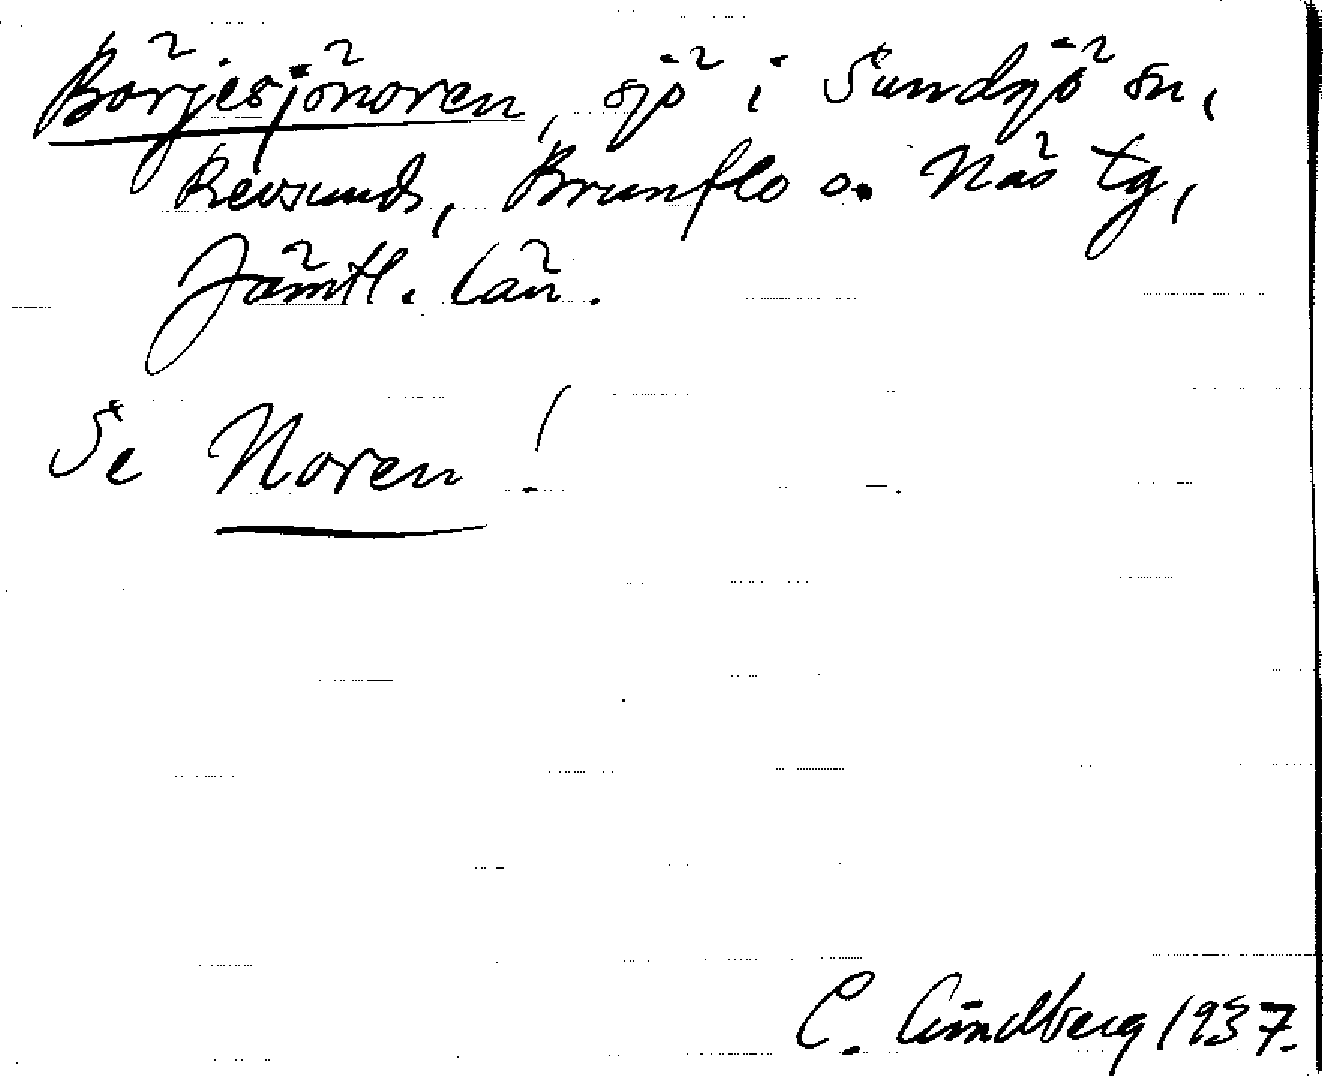 Börjesjönoren, sjö i Sundsjö sn,
Revsunds, Brunflo o. Näs tg,
Jämtl. län.
Se Noren!
C. Lindberg 1937.